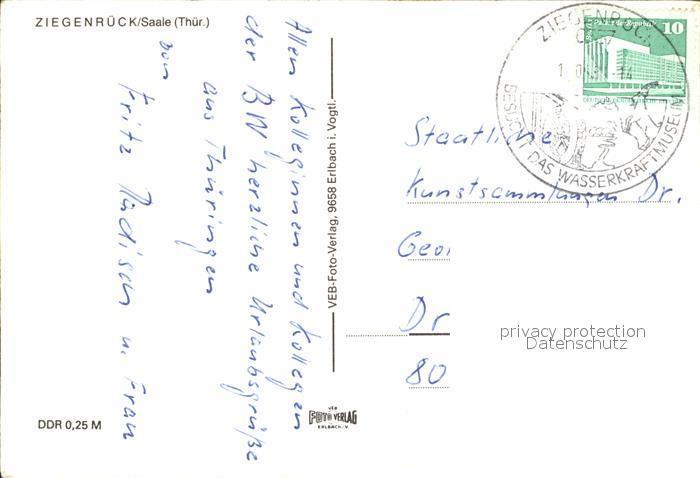 ZIEGENRÜCK/Saale (Thür.)
Allen Kolleginnen und Kollegen
der BN herzliche Urlaubsgrüße
aus Thüringen
von
Fritz Rudisan u. Frau
VEB-Foto-Verlag, 9658 Erlbach i. Vogtl.
ZIEGENRÜCK
BESUCHT DAS WASSERKRAFTMUSEUM
Palast der Republik
10
Staatliche
Kunstsammlungen Dr.
Geor
Dr
80
privacy protection
Datenschutz
DDR 0,25 M
VEB
FOTO VERLAG
ERLBACH/V